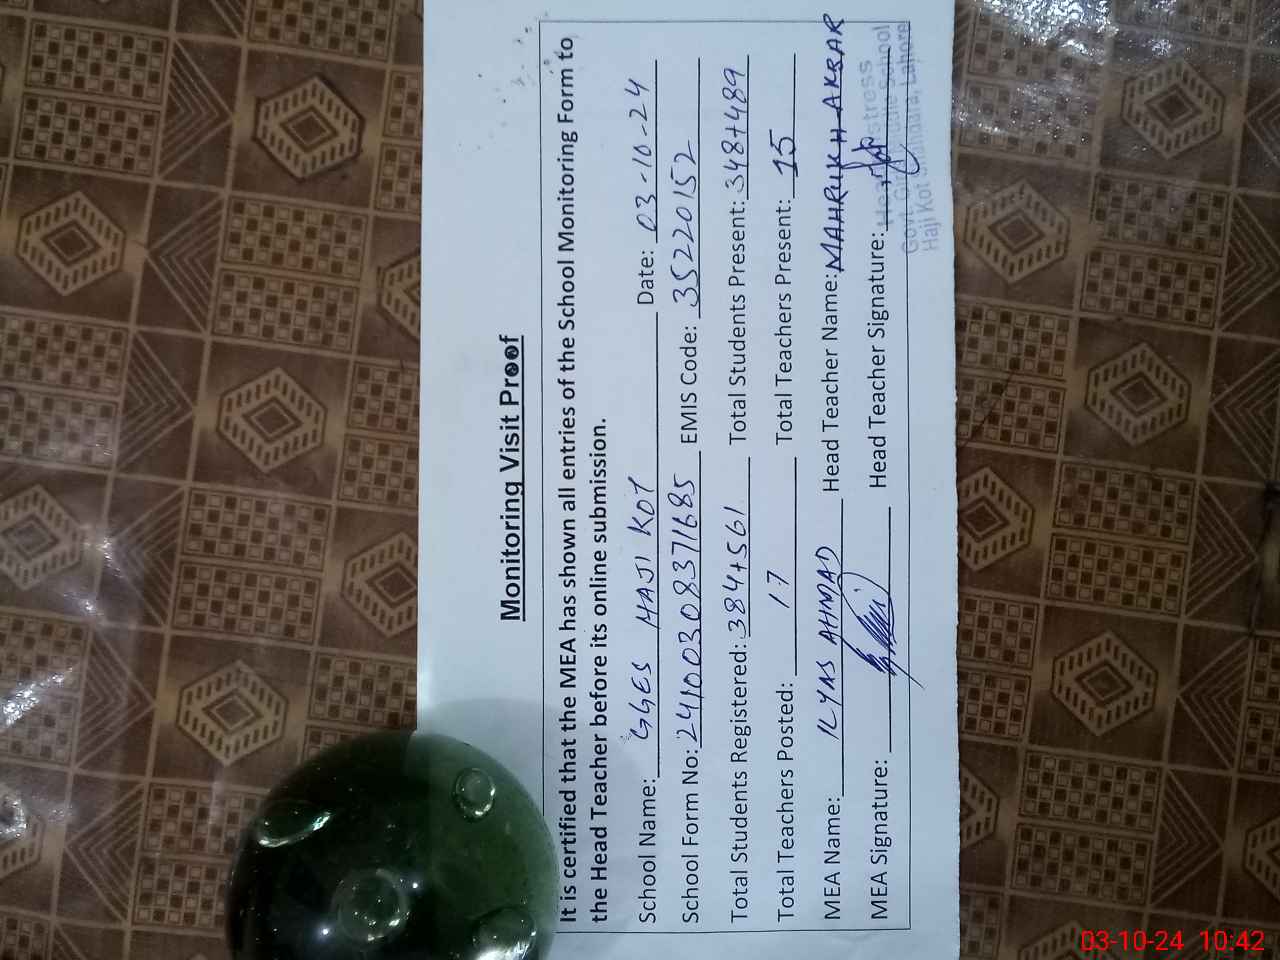 Monitoring Visit Proof
It is certified that the MEA has shown all entries of the School Monitoring Form to
the Head Teacher before its online submission.
School Name: GGES HAJI KOT Date: 03-10-24
School Form No: 24100308371685 EMIS Code: 35220152
Total Students Registered: 384+561 Total Students Present: 348+489
Total Teachers Posted: 17 Total Teachers Present: 15
MEA Name: ILYAS AHMAD Head Teacher Name: MAHRUKH AKBAR
MEA Signature: Head Teacher Signature:
Headmistress
Govt. School
Haji Kot Shahdara, Lahore
03-10-24 10:42